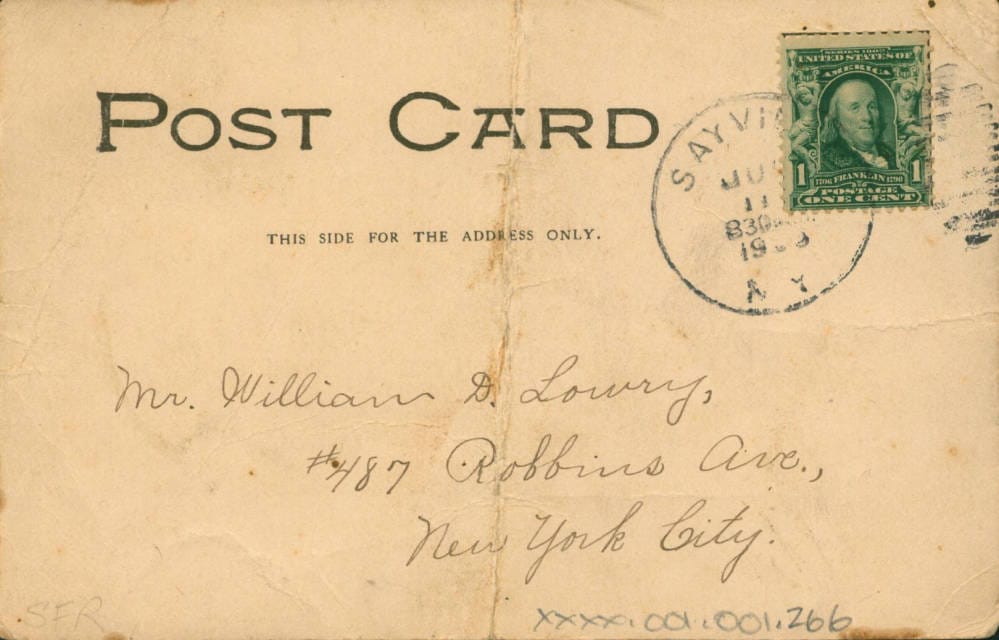 POST CARD
THIS SIDE FOR THE ADDRESS ONLY.
SERIES 1902
UNITED STATES OF
AMERICA
1 1706 FRANKLIN 1790 1
POSTAGE
ONE CENT
11
N Y
Mr. William D. Lowry,
#487 Robbins Ave.,
New York City.
SFR
XXXX.001.001.266